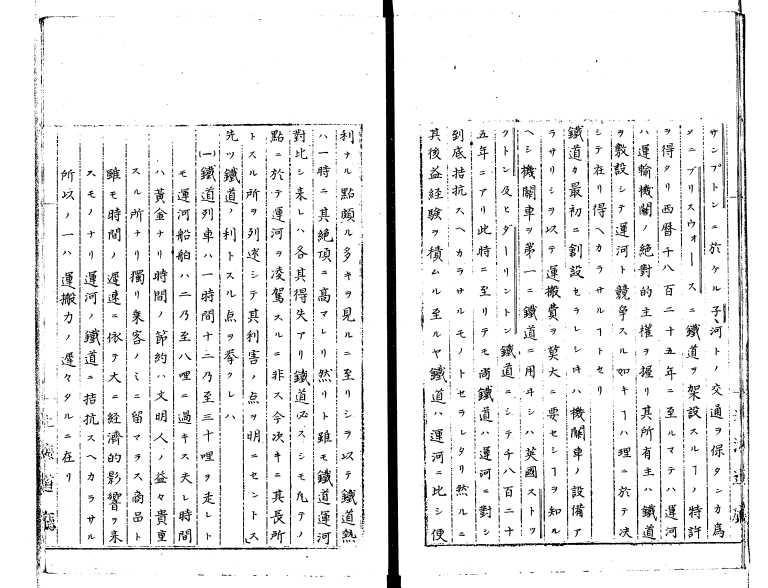 サンプトンニ於ケル子河トノ交通ヲ保タンカ爲
メニブリスウォースニ鐵道ヲ架設スルヿノ特許
ヲ得タリ西暦千八百二十五年ニ至ルマテハ運河
ハ運輸機關ノ絶對的主權ヲ握リ其所有主ハ鐵道
ヲ敷設シテ運河ト競爭スル如キヿハ理ニ於テ決
シテ在リ得ヘカラサルヿトセリ
鐵道カ最初ニ創設セラレシ時ハ機關車ノ設備ア
ラサリシヲ以テ運搬費ヲ莫大ニ要セシヿヲ知ル
ヘシ機關車ヲ第一ニ鐵道ニ用ヰシハ英國ストッ
クトン及ヒダーリントン鐵道ニシテ千八百二十
五年ニアリ此時ニ至リテモ尚鐵道ハ運河ニ對シ
到底拮抗スヘカラサルモノトセラレタリ然ルニ
其後益經験ヲ積ムル至ルヤ鐵道ハ運河ニ比シ便
利ナル點頗ル多キヲ見ルニ至リシヲ以テ鐵道熱
ハ一時ニ其絶頂ニ高マレリ然リト雖モ鐵道運河
對比シ来レハ各其得失アリ鐵道必スシモ凡テノ
點ニ於テ運河ヲ凌駕スルニ非ス今次キニ其長所
トスル所ヲ列述シテ其利害ノ点ヲ明ニセントス
先ツ鐵道ノ利トスル点ヲ擧クレハ
(一)鐵道列車ハ一時間十二乃至三十哩ヲ走レト
モ運河船舶ハ二乃至八哩ニ過キス夫レ時間
ハ黄金ナリ時間ノ節約ハ文明人ノ益々貴重
スル所ナリ獨リ乗客ノミニ留マラス商品ト
雖モ時間ノ遲速ニ依テ大ニ經濟的影響ヲ来
スモノナリ運河ノ鐵道ニ拮抗スヘカラサル
所以ノ一ハ運搬力ノ遲々タルニ在リ